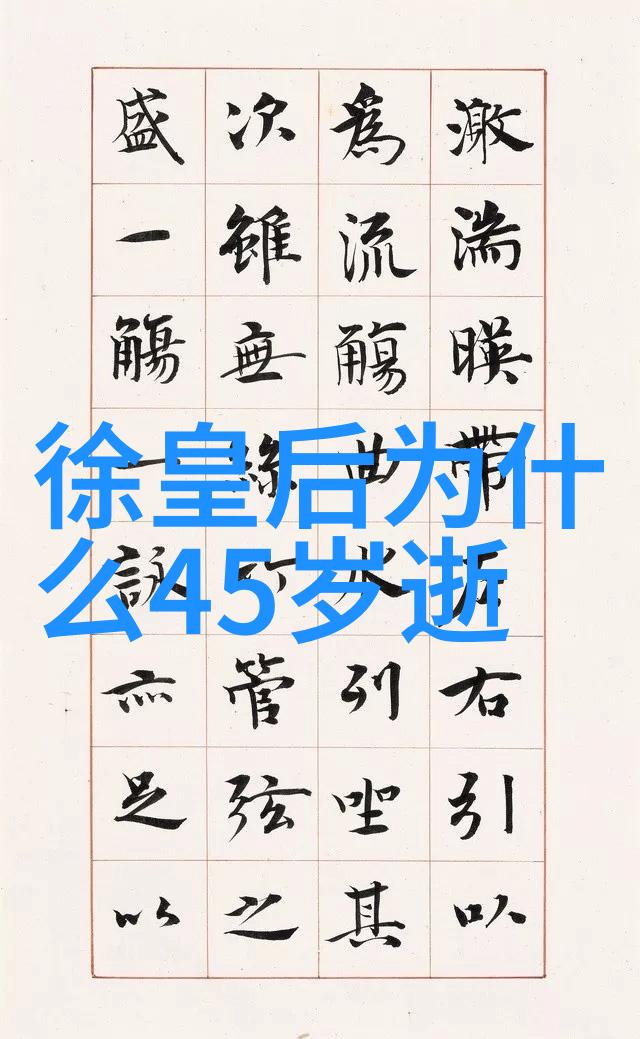 徐皇后为什
么45岁逝
激湍暎帶左右引以
為流觴曲水列坐其
次雖無絲竹管弦之
盛一觴一詠亦足以